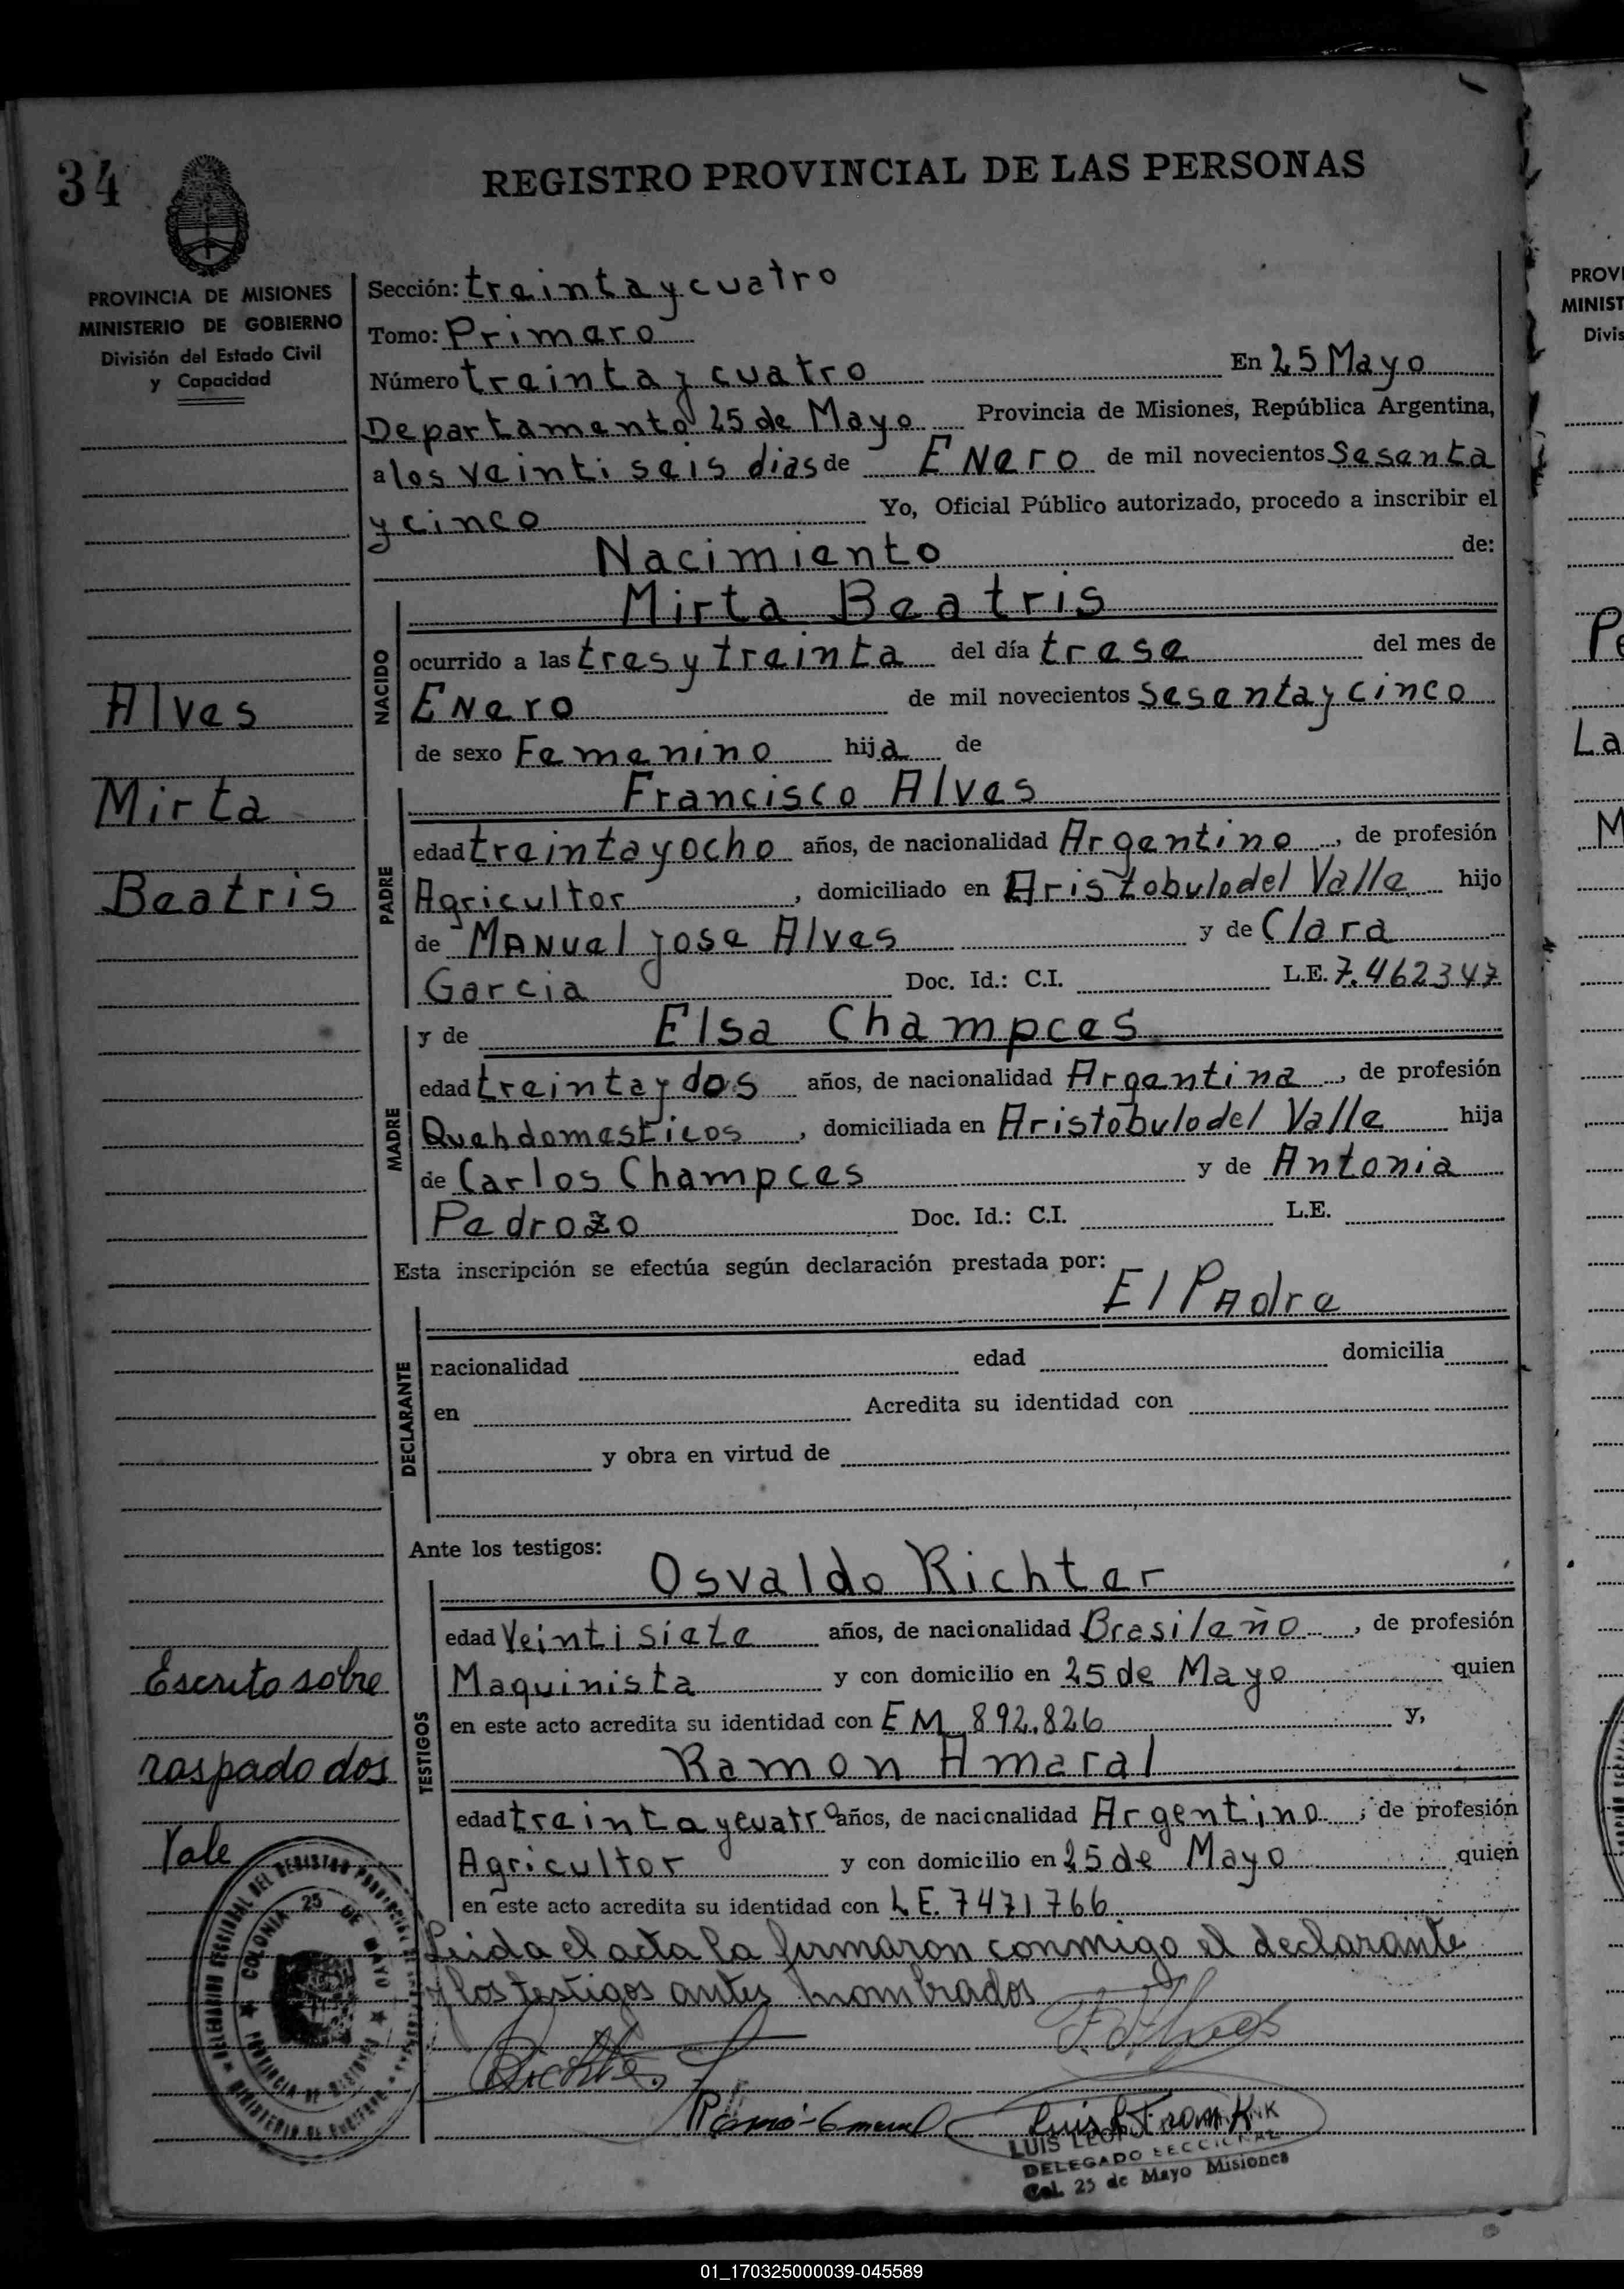 34
REGISTRO PROVINCIAL DE LAS PERSONAS
PROVINCIA DE MISIONES
MINISTERIO DE GOBIERNO
División del Estado Civil
y Capacidad
Sección: treinta y cuatro
Tomo: Primero
Número treinta y cuatro En 25 Mayo
Departamento 25 de Mayo Provincia de Misiones, República Argentina,
a los veinti seis dias de ENero de mil novecientos Sesenta
y cinco Yo, Oficial Público autorizado, procedo a inscribir el
Nacimiento de:
Mirta Beatris
NACIDO
ocurrido a las tres y treinta del día trese del mes de
ENero de mil novecientos sesenta y cinco
de sexo Femenino hija de
Alves
Mirta
Beatris
Francisco Alves
PADRE
edad treinta y ocho años, de nacionalidad Argentino, de profesión
Agricultor, domiciliado en Aristobulo del Valle hijo
de MANuel jose Alves y de Clara
Garcia Doc. Id.: C.I. L.E. 7.462347
y de Elsa Champces
MADRE
edad treinta y dos años, de nacionalidad Argentina, de profesión
Queh domesticos, domiciliada en Aristobulo del Valle hija
de Carlos Champces y de Antonia
Pedrozo Doc. Id.: C.I. L.E.
Esta inscripción se efectúa según declaración prestada por:
El PAdre
DECLARANTE
nacionalidad edad domicilia
en Acredita su identidad con
y obra en virtud de
Ante los testigos:
Osvaldo Richter
TESTIGOS
edad Veinti siete años, de nacionalidad Brasileño, de profesión
Maquinista y con domicilio en 25 de Mayo quien
en este acto acredita su identidad con E M 892.826 y,
Ramon Amaral
edad treinta y cuatro años, de nacionalidad Argentino, de profesión
Agricultor y con domicilio en 25 de Mayo quien
en este acto acredita su identidad con L E. 7471766
Escrito sobre
raspado dos
Vale
Leida el acta la firmaron conmigo el declarante
y los testigos antes nombrados
F. Alves
Richter
Ramon Amaral
Luis L Frank
DELEGADO SECCIONAL
Col. 25 de Mayo Misiones
COLONIA 25 DE MAYO
PROVINCIA DE MISIONES
PROVI
MINIST
Divis
Pe
La
M
01_170325000039-045589